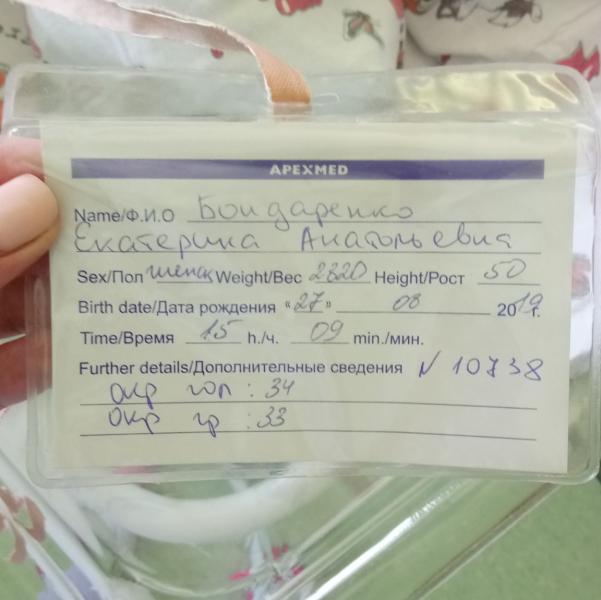 APEXMED
Name/Ф.И.О Бондаренко
Екатерина Анатольевна
Sex/Пол женск Weight/Вес 2820 Height/Рост 50
Birth date/Дата рождения “27” 08 2019г.
Time/Время 15 h./ч. 09 min./мин.
Further details/Дополнительные сведения N 10738
окр гол : 34
окр гр : 33